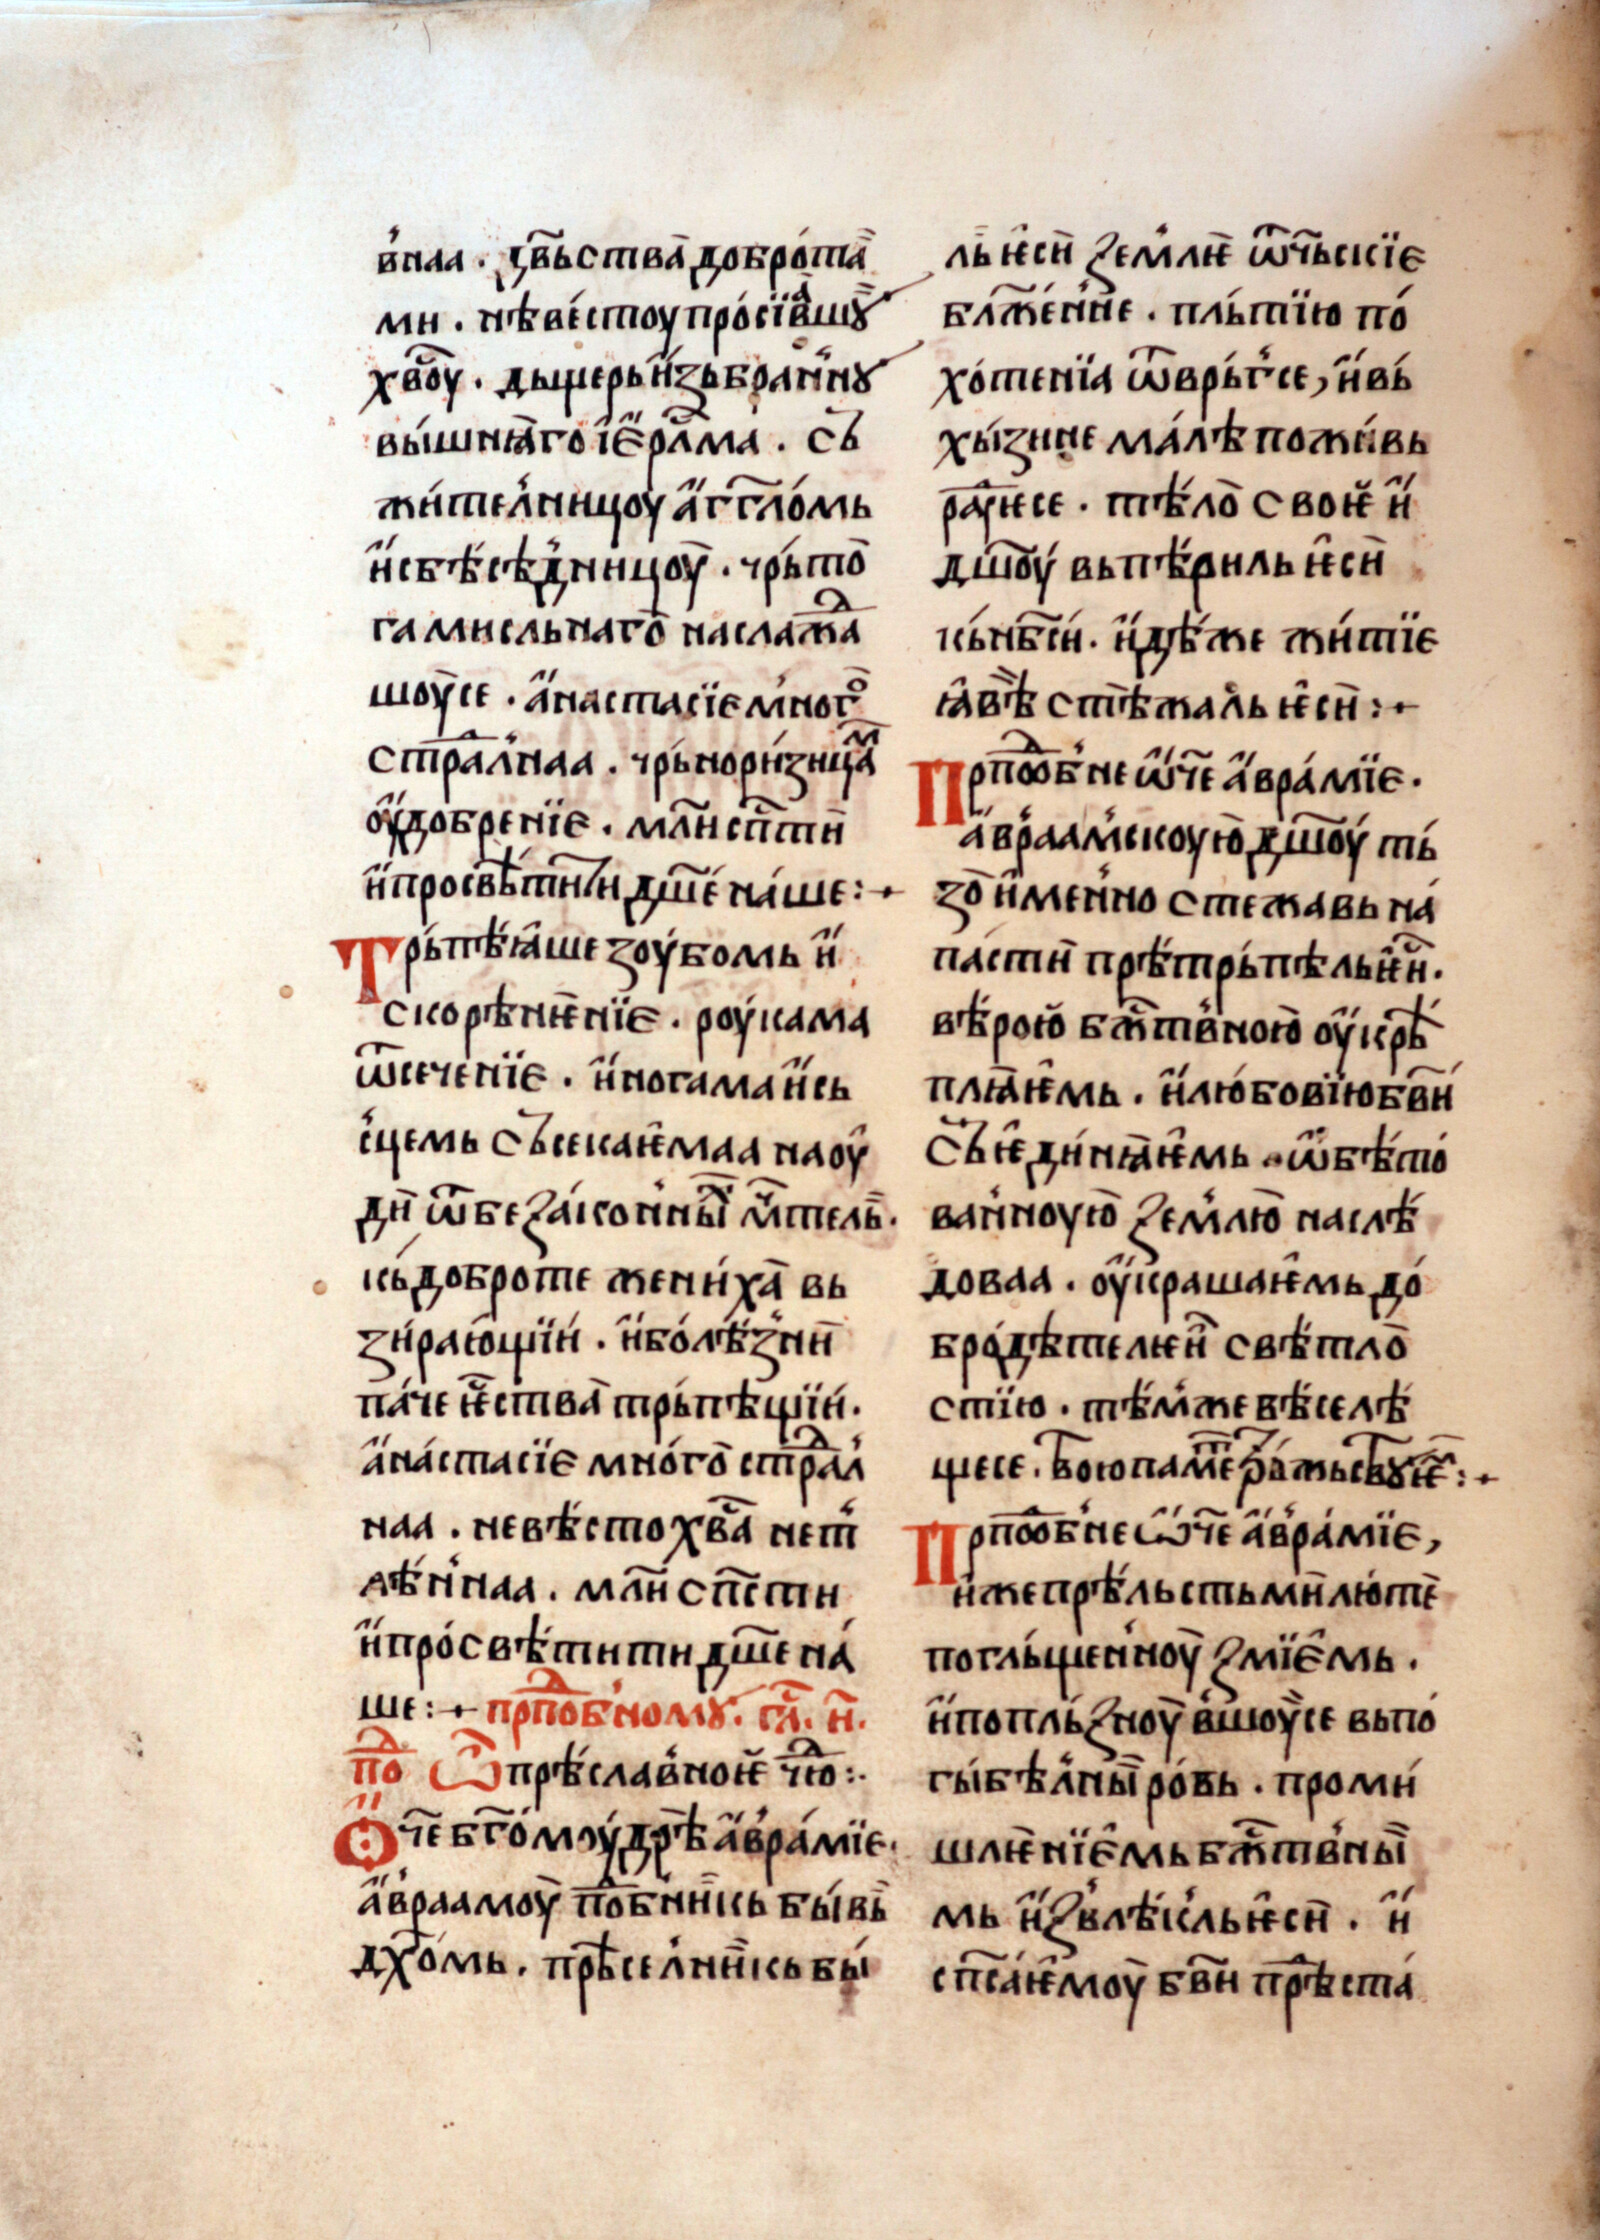 в́наа · д̾в҃ьства̀ добро́та̀
ми · нѣвѣ́стоу просїа́вшꙋ̀
хв҃оу · дъщерь и҆збра́н꙽нꙋ
вы́шнꙗ̀го і҆е҆рл҃ма · съ
жи́тел꙽ницоу а҆гг҃ло́мь
и҆сбѣсѣ́д꙽ницоу̀ · чрь́то̀
га мисльнаго̀ наслажⷣа̀
шоу̀се · а҆настасїе м꙽ногⷪ
страⷣл꙽наа · чрьнори́зицаⷨ
оу҆добренїе · мл҃и сп҃сти
и҆просвѣти́ти дш҃е на́ше :·
Трь́пѣ́ꙗ҆ше зоу́бомь и҆
скорѣнꙗ̀нїе · роу́кама
ѿсеченїе · и҆ногама и҆сь
с꙽цемь съсекаѥ҆маа на оу҆
дѝ ѿбеꙁако́н꙽ныⷯ мⷱ҇тель̀ ·
кь́доброте жени́ха̀ вь
зи́раю҆щїи́ · и҆бо́лѣз꙽нѝ
па́че ѥ҆стⷭ҇ва̀ трьпѣщїи́ ·
а҆на́стасїе мно́го̀ страⷣл꙽
наа · невѣ́сто хв҃а нет꙽
лѣн꙽наа · мл҃и сп҃сти
и҆про́свѣ́тити дш҃е на́
ше :· прпⷣобномꙋ · гла · и҃ ·
поⷣ Ѽ прѣ́слав꙽ноѥ̀ чюⷣ :·
Ѻ҆ч҃е бг҃омоу́дрѣ̀ а҆в꙽ра́мїе ·
а҆враамоу̀ поⷣбникь бы́вь̀
дх҃омь · прѣ̀сел꙽никь бы́
ль ѥ҆сѝ ꙁемлѥ̀ ѿч꙽ьскїе
бл҃же́нне · пль́тїю по́
хо́тенїа ѿврь́г꙽се, и҆вь́
хы́зине ма́лѣ пожи́вь
раⷣꙋѥсе · тѣ́ло̀ своѥ̀ и҆
дш҃оу́ вьпѣ́риль ѥ҆сѝ
кь́нб҃си́ · и҆дѣ́же жи́тїе
ꙗ҆вѣ̀ стѣ̀жаль ѥ҆сѝ :·
Прпⷣобне ѡ҆ч҃е а҆вра́мїе ·
а҆враам꙽скоую̀ дш҃оу́ ть́
зо̀ и҆мен꙽но стежавь на́
па́стѝ прѣ́трь́пѣль ѥ҆сⷭ҇и ·
вѣ́рою̀ бжⷭ҇твⷩ꙽ною̀ оу҆крѣ́
плꙗ̀ѥмь · и҆лю́бовїю бж҃и́
съѥди́нꙗ̀ѥмь · ѡ҆бѣ́то́
ван꙽ноую̀ ꙁемлю̀ наслѣ́
доваа · оу҆крашаѥ҆мь до́
бро́дѣтелѥи҆ свѣ́тло̀
стїю · тѣм꙽же вѣ́селѣ́
щесе · во́ю паметь раⷣжьствꙋѥⷨ :·
Прпⷣобне ѡ҆ч҃е а҆вра́мїе,
и҆же прѣ́льсть мѝ лю́тѣ̀
погль́щен꙽ноу̀ ꙁмїе҆мь ·
и҆поплъ́ꙁноу̀в꙽шоу̀се вьпо́
гы́бѣл꙽ныⷨ ро́вь · проми́
шлѥ̀нїе҆мь бжⷭ҇тв꙽ныи̇
мь и҆ꙁвлѣ́к꙽ль ѥ҆сѝ · и҆
сп҃са́ѥмоу̀ бв҃и прѣ̀ста́